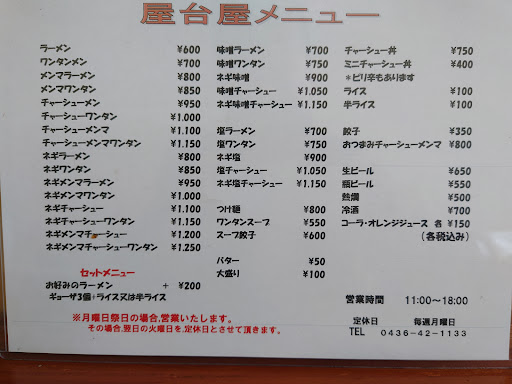 屋台屋メニュー
ラーメン ¥600
ワンタンメン ¥700
メンマラーメン ¥800
メンマワンタン ¥850
チャーシューメン ¥950
チャーシューワンタン ¥1.000
チャーシューメンマ ¥1.100
チャーシューメンマワンタン ¥1.150
ネギラーメン ¥800
ネギワンタン ¥850
ネギメンマラーメン ¥950
ネギメンマワンタン ¥1.000
ネギチャーシュー ¥1.100
ネギチャーシューワンタン ¥1.150
ネギメンマチャーシュー ¥1.200
ネギメンマチャーシューワンタン ¥1.250
セットメニュー
お好みのラーメン + ¥200
ギョーザ3個+ライス又は半ライス
味噌ラーメン ¥700
味噌ワンタン ¥750
ネギ味噌 ¥900
味噌チャーシュー ¥1.050
ネギ味噌チャーシュー ¥1.150
塩ラーメン ¥700
塩ワンタン ¥750
ネギ塩 ¥900
塩チャーシュー ¥1.050
ネギ塩チャーシュー ¥1.150
つけ麺 ¥800
ワンタンスープ ¥550
スープ餃子 ¥600
バター ¥50
大盛り ¥100
チャーシュー丼 ¥750
ミニチャーシュー丼 ¥400
*ピリ辛もあります
ライス ¥100
半ライス ¥100
餃子 ¥350
おつまみチャーシューメンマ ¥800
生ビール ¥650
瓶ビール ¥550
熱燗 ¥500
冷酒 ¥700
コーラ・オレンジジュース 各 ¥150
(各税込み)
営業時間 11:00~18:00
※月曜日祭日の場合,営業いたします。
その場合,翌日の火曜日を,定休日とさせて頂きます。
定休日 毎週月曜日
TEL 0436-42-1133